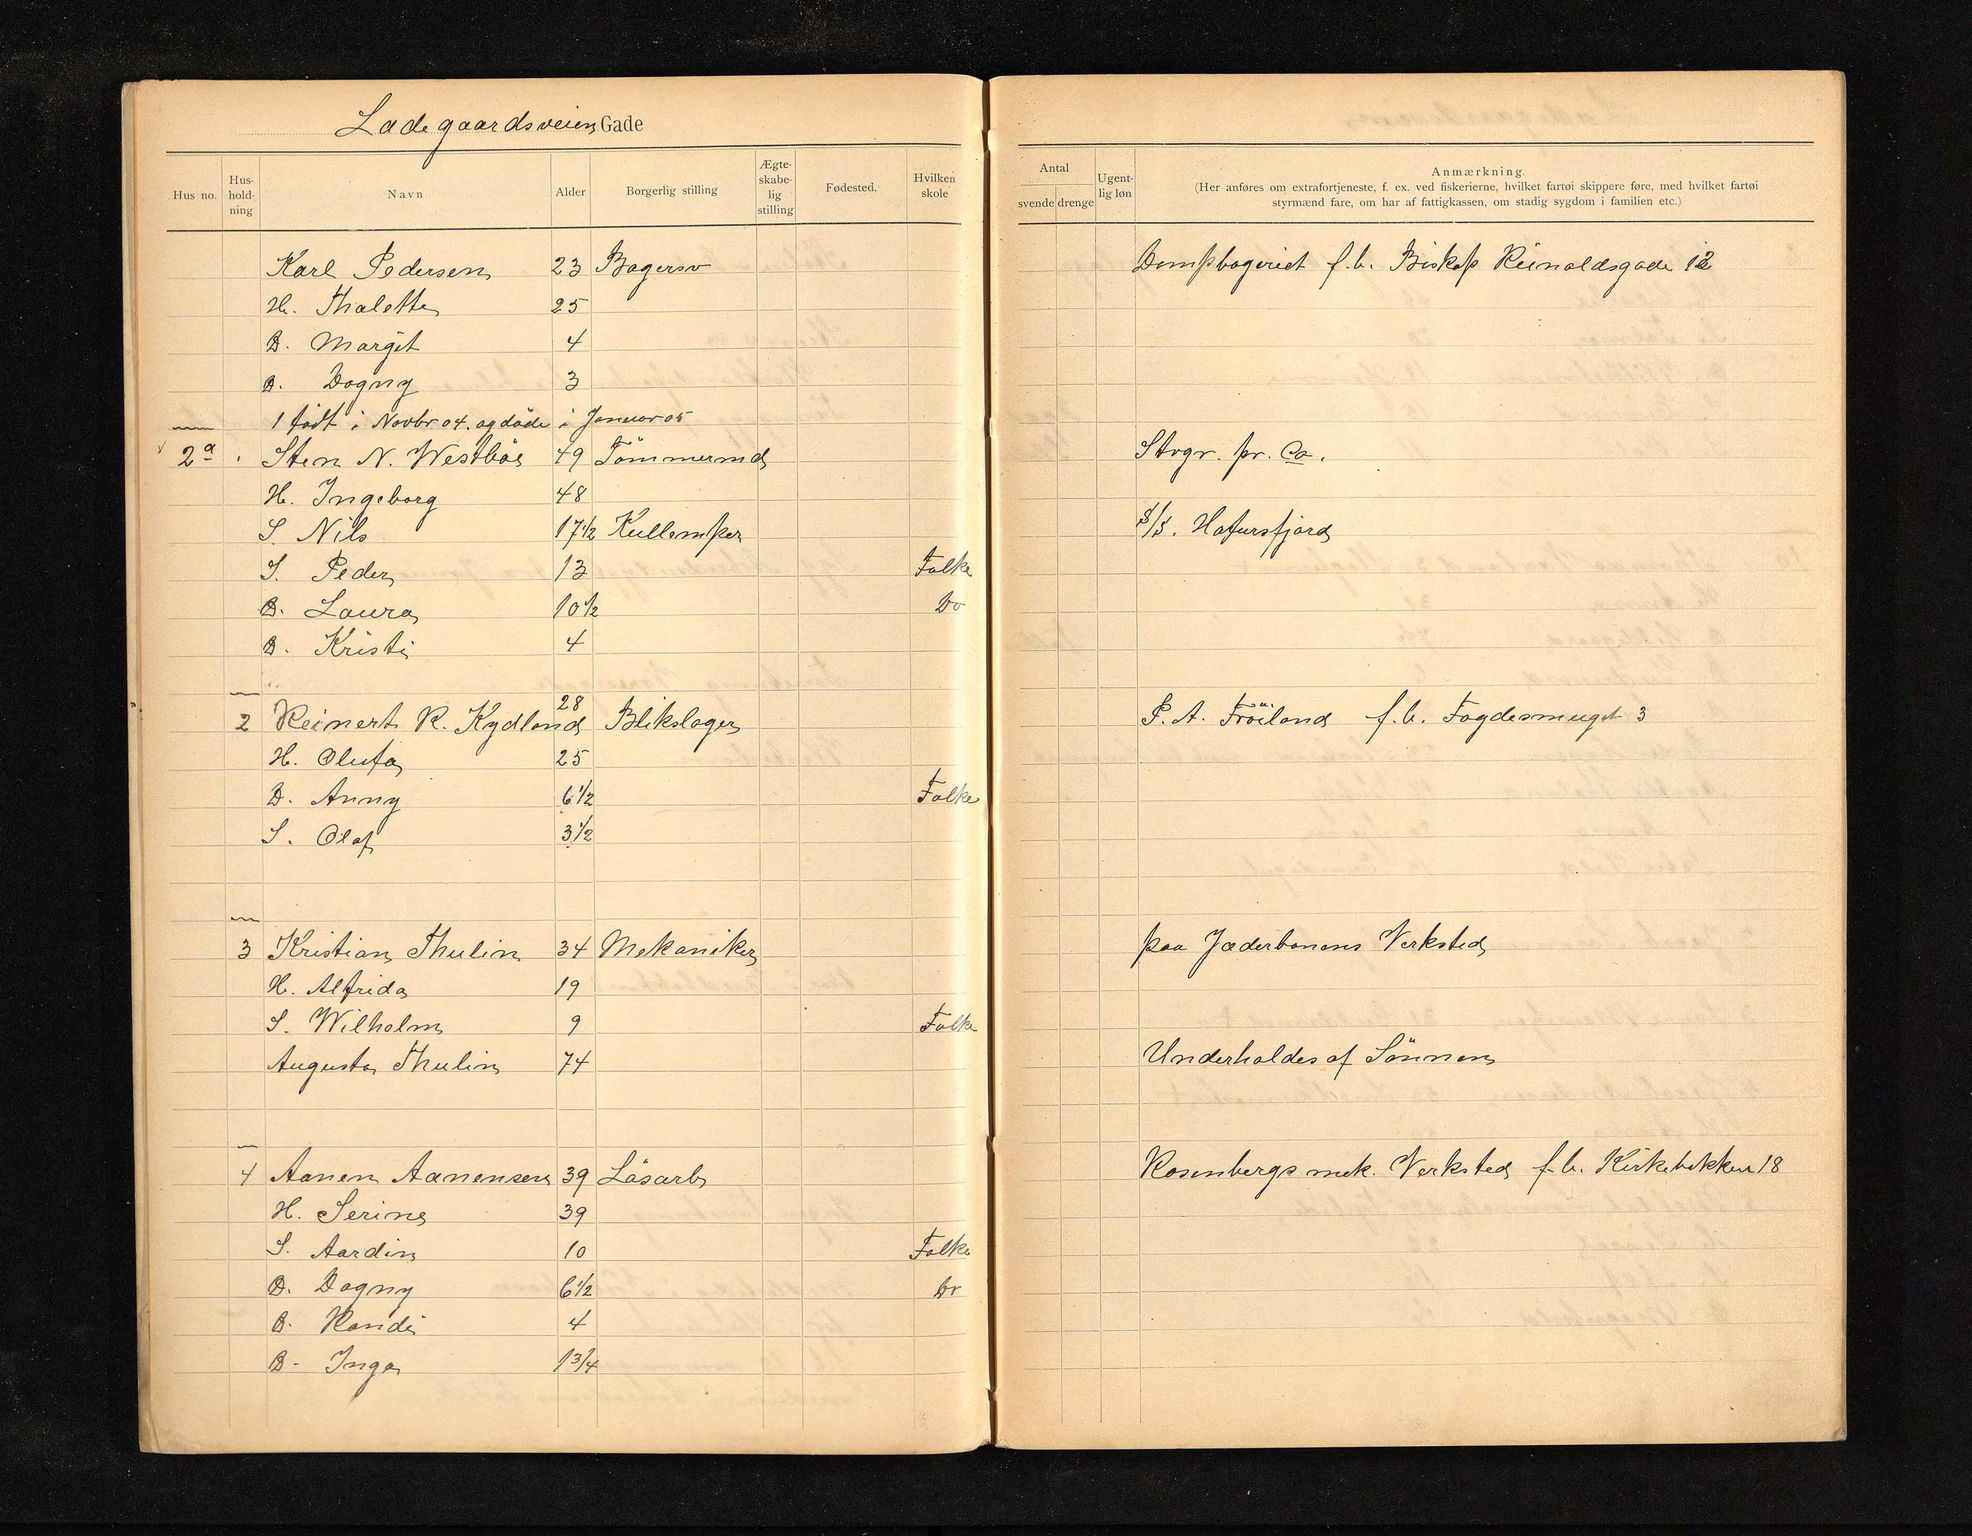 Ladegaardsveien Gade
Hus no. Hus-hold-ning Navn Alder Borgerlig stilling Ægte-skabe-lig stilling Fødested. Hvilken skole Antal svende drenge Ugent-lig løn Anmærkning.
(Her anføres om extrafortjeneste, f. ex. ved fiskerierne, hvilket fartøi skippere føre, med hvilket fartøi
styrmænd fare, om har af fattigkassen, om stadig sygdom i familien etc.)
Karl Pedersen 23 Bagersv Dampbageriet f.b. Biskop Reinaldsgade 12
H. Thalette 25
D. Margit 4
D. Dagny 3
1 født i Novbr 04. og døde i Januar 05
2a Sten N. Westbøe 49 Tömmermd Stvgr. pr. Co.
H. Ingeborg 48
S. Nils 17 1/2 Kullemper S/S. Hafursfjord
S. Peder 13 Folke
D. Laura 10 1/2 Do
D. Kristi 4
2 Reinert R. Kydland 28 Blikslager P. A. Fröiland f.b. Fogdesmuget 3
H. Olufa 25
D. Anny 6 1/2 Folke
S. Olaf 3 1/2
3 Kristian Thulin 34 Mekaniker paa Jæderbanens Verksted
H. Alfrida 19
S. Wilhelm 9 Folke
Augusta Thulin 74 Underholdes af Sönnen
4 Aanen Aanensen 39 Lösarb Rosenbergs mek. Verksted f.b. Kirkebakken 18
H. Serine 39
S. Aardin 10 Folke
D. Dagny 6 1/2 Do
D. Randi 4
D. Inga 1 3/4